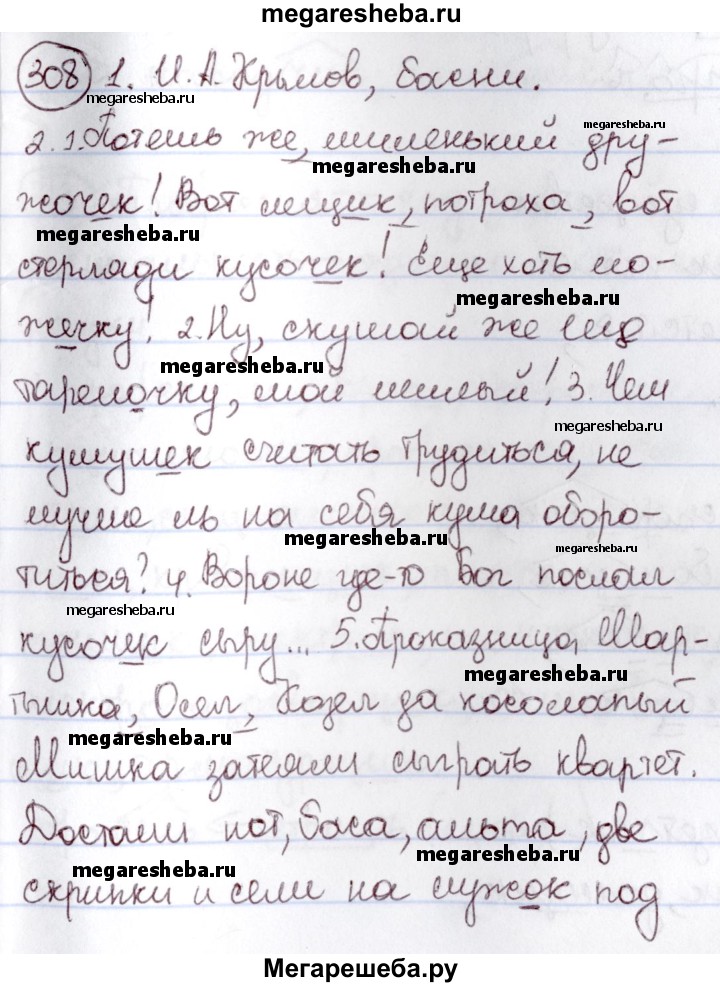 megaresheba.ru
308 1. И. А. Крылов, басни.
megaresheba.ru
megaresheba.ru
2. 1. Потешь же, миленький дру-
megaresheba.ru
жочек! Вот лещик, потроха, вот
megaresheba.ru
стерляди кусочек! Еще хоть ло-
megaresheba.ru
жечку! 2. Ну, скушай же еще
megaresheba.ru
тарелочку, мой милый! 3. Чем
megaresheba.ru
кумушек считать трудиться, не
лучше ль на себя кума оборо-
megaresheba.ru
megaresheba.ru
титься? 4. Вороне где-то Бог послал
megaresheba.ru
кусочек сыру... 5. Проказница, Мар-
megaresheba.ru
тышка, Осел, Козел да косолапый
megaresheba.ru
Мишка затеяли сыграть квартет.
Достали нот, баса, альта, две
megaresheba.ru
megaresheba.ru
скрипки и сели на лужок под
Мегарешеба.ру